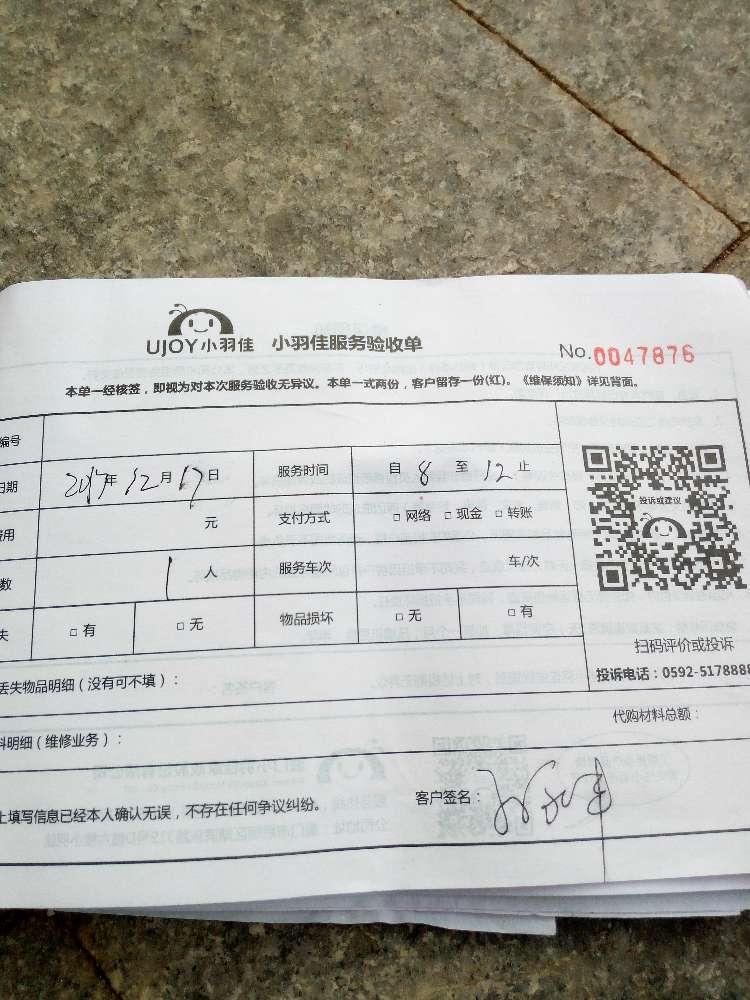 UJOY小羽佳 小羽佳服务验收单 No.0047876
本单一经核签，即视为对本次服务验收无异议。本单一式两份，客户留存一份(红)。《维保须知》详见背面。
编号
日期 2017年 12月 17日 服务时间 自 8 至 12 止
投诉或建议
费用 元 支付方式 □ 网络 □ 现金 □ 转账
数 1 人 服务车次 车/次
失 □ 有 □ 无 物品损坏 □ 无 □ 有
扫码评价或投诉
投诉电话：0592-5178888
丢失物品明细（没有可不填）：
代购材料总额：
料明细（维修业务）：
上填写信息已经本人确认无误，不存在任何争议纠纷。 客户签名：